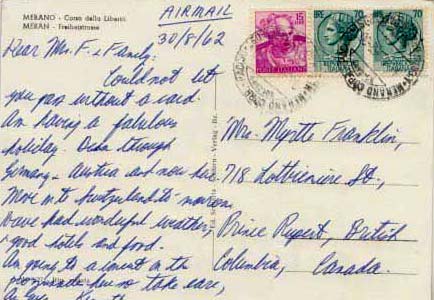 MERANO - Corso della Libertà
MERAN - Freiheitstrasse
AIRMAIL
30/8/62
Dear Mrs. F & Family:
Could not let
you pass without a card.
Am having a fabulous
holiday. Been through
Germany - Austria and now here.
Move into Switzerland tomorrow.
Have had wonderful weather,
good hotels and food.
Am going to a concert on the
promenade here so take care,
As Ever
Mrs. Myrtle Franklin,
718 Lotbiniere St.,
Prince Rupert, British
Columbia, Canada.
15
POSTE ITALIANE
70
70
MERANO